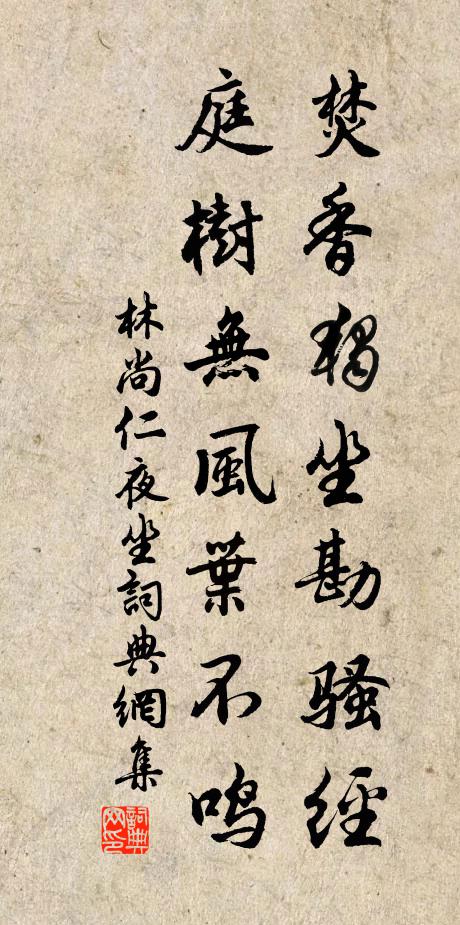 焚香獨坐勘騷經
庭樹無風葉不鳴
林尚仁夜坐詞典網集
詞典网印